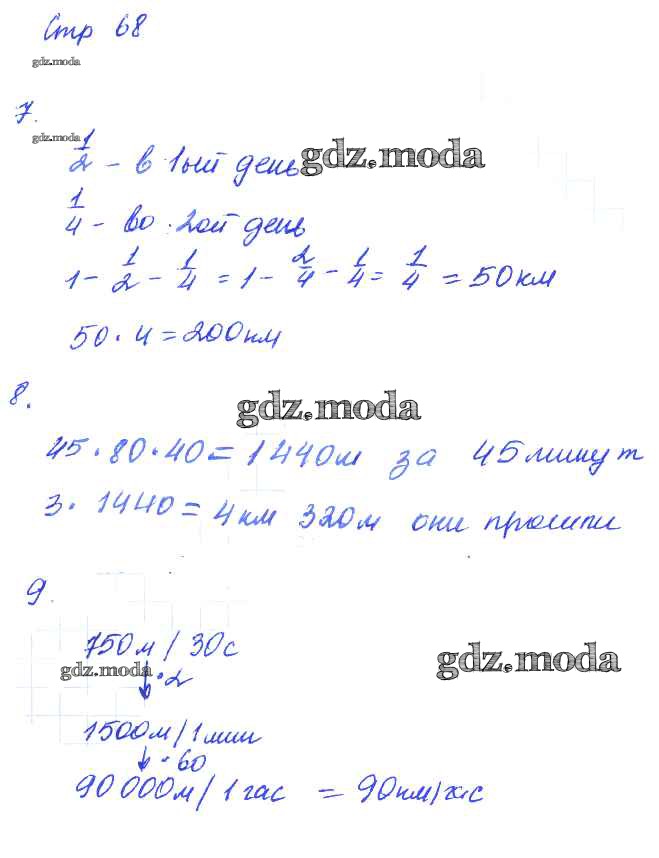 Стр 68
gdz.moda
7.
gdz.moda
1/2 - в 1ый день
gdz.moda
1/4 - во 2ой день
1 - 1/2 - 1/4 = 1 - 2/4 - 1/4 = 1/4 = 50 км
50 · 4 = 200 км
8.
gdz.moda
45 · 80 · 40 = 1440 м за 45 минут
3 · 1440 = 4 км 320 м они прошли
9.
750 м / 30 с
gdz.moda
gdz.moda
↓ · 2
1500 м / 1 мин
↓ · 60
90 000 м / 1 час = 90 км/час